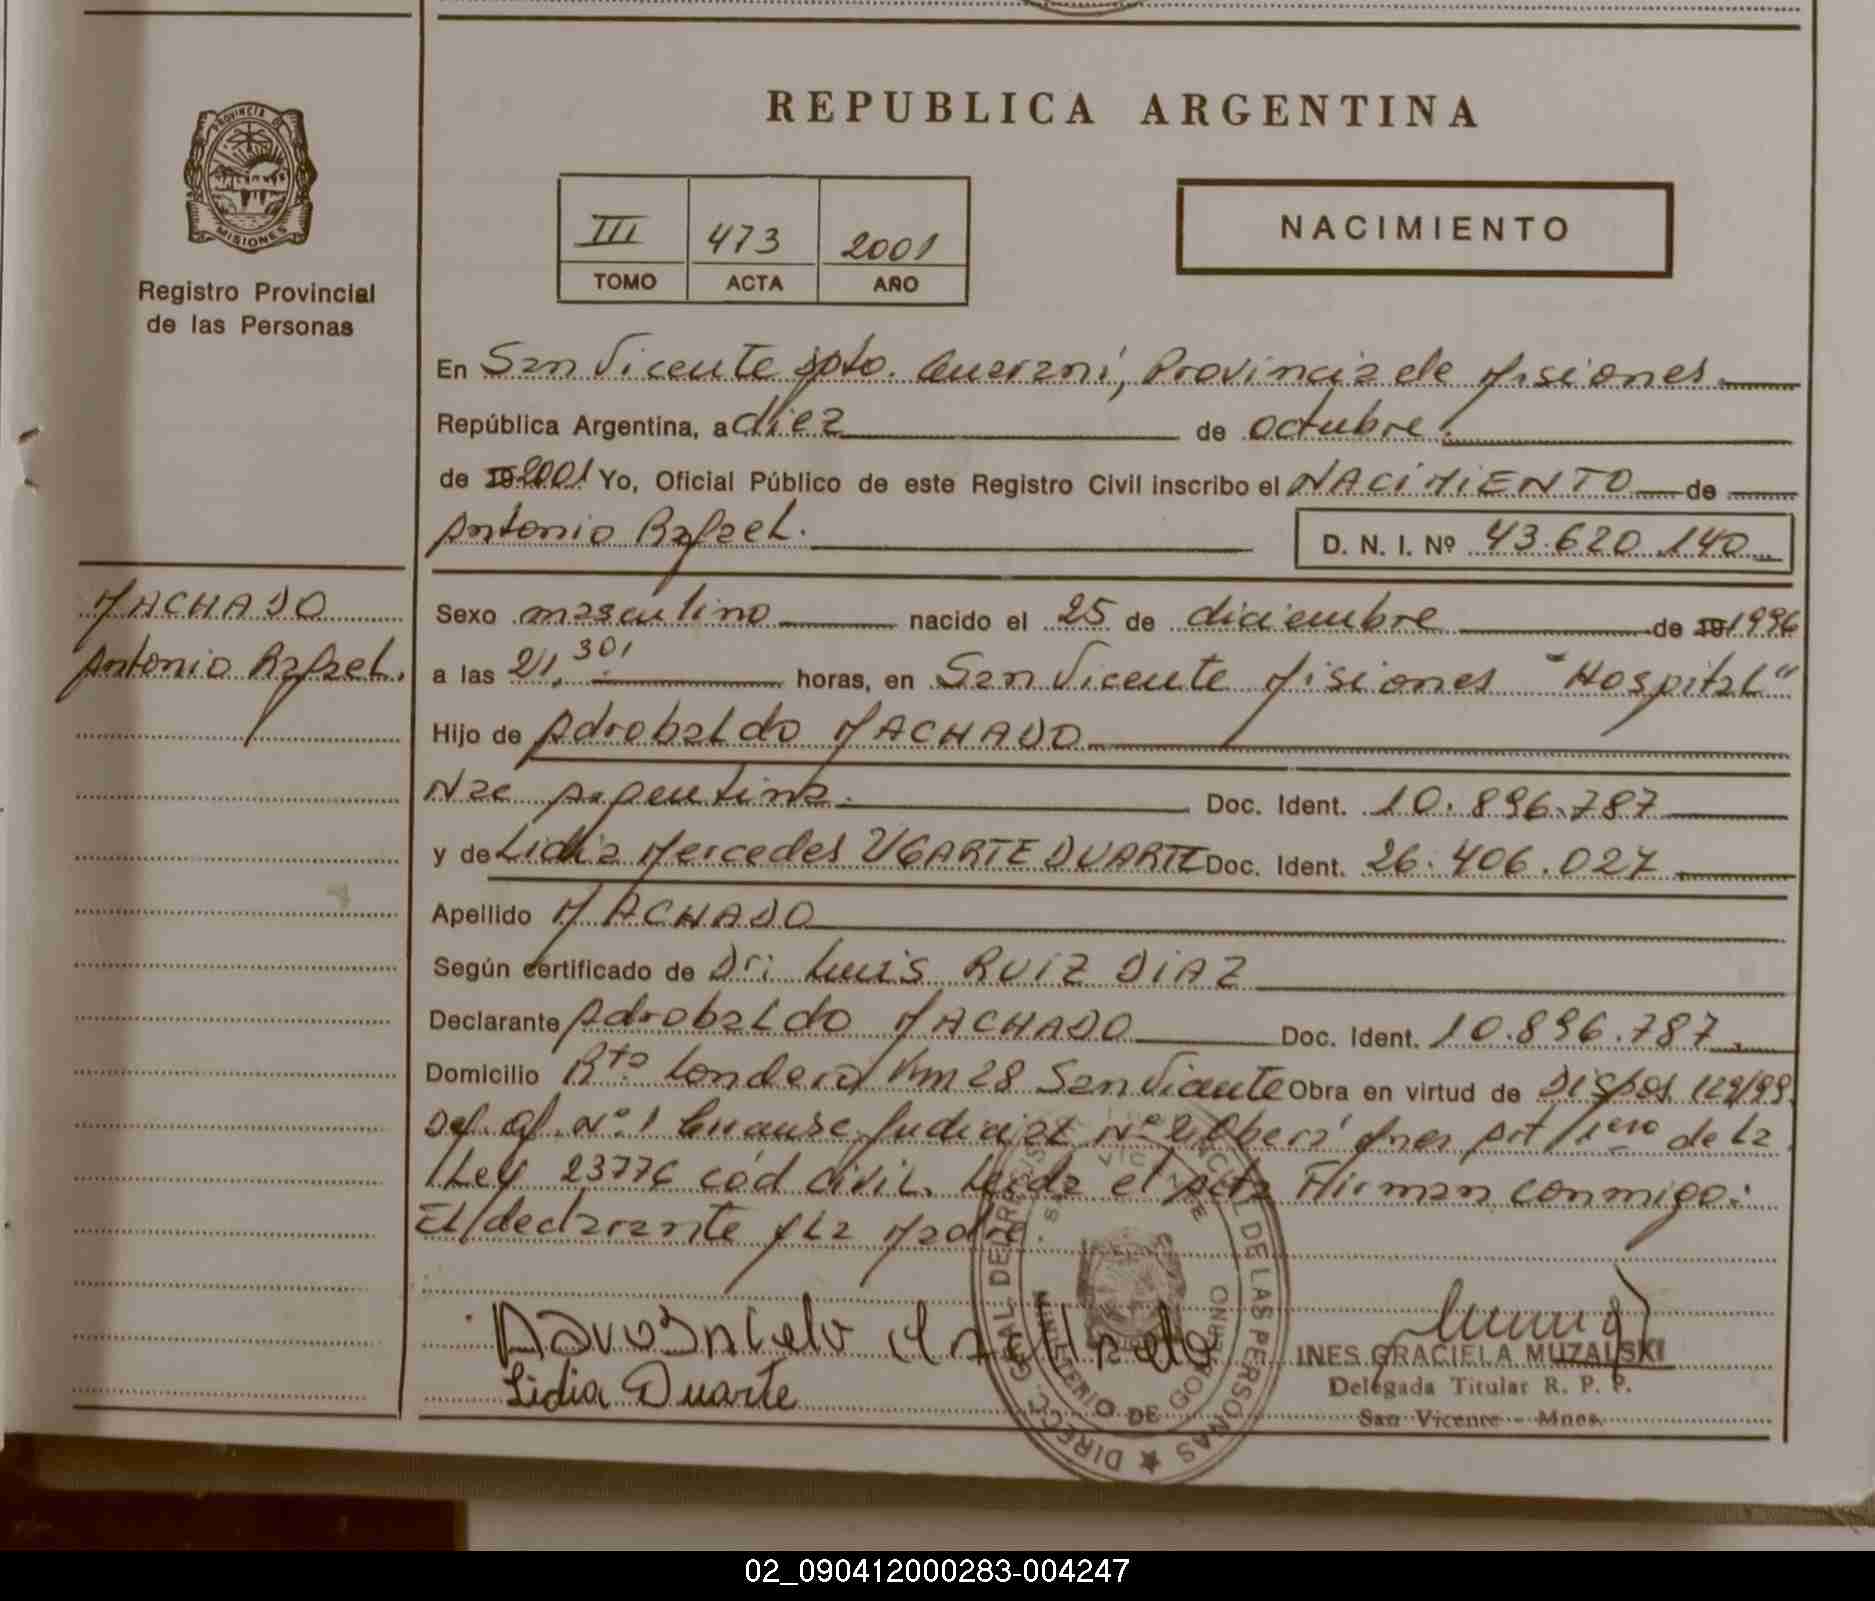 REPUBLICA ARGENTINA
PROVINCIA DE
MISIONES
Registro Provincial
de las Personas
III 473 2001
TOMO ACTA AÑO
NACIMIENTO
En San Vicente Dpto. Guaraní, Provincia de Misiones.
República Argentina, a diez de octubre.
de 19 2001 Yo, Oficial Público de este Registro Civil inscribo el NACIMIENTO de
Antonio Rafael. D. N. I. Nº 43.620.140
MACHADO
Antonio Rafael.
Sexo masculino nacido el 25 de diciembre de 19 1996
a las 21,30' horas, en San Vicente Misiones "Hospital"
Hijo de Adrobaldo MACHADO
Nac Argentina. Doc. Ident. 10.896.787
y de Lidia Mercedes UGARTE DUARTE Doc. Ident. 26.406.027
Apellido MACHADO
Según certificado de Dr: Luis RUIZ DIAZ
Declarante Adrobaldo MACHADO Doc. Ident. 10.896.787
Domicilio Rta Londero Km 28 San Vicente Obra en virtud de Dispos 129/99.
Def. Of. Nº 1 Judicial Nº 2 Oberá Mnes Art 1ero de la
Ley 23776 cód civil. Leída el Acta Firman conmigo:
El declarante y la Madre.
DIRECC. GRAL. DEL REGISTRO PROVINCIAL DE LAS PERSONAS
SAN VICENTE
MINISTERIO DE GOBIERNO
Lidia Duarte
INES GRACIELA MUZALSKI
Delegada Titular R. P. P.
San Vicente - Mnes.
02_090412000283-004247